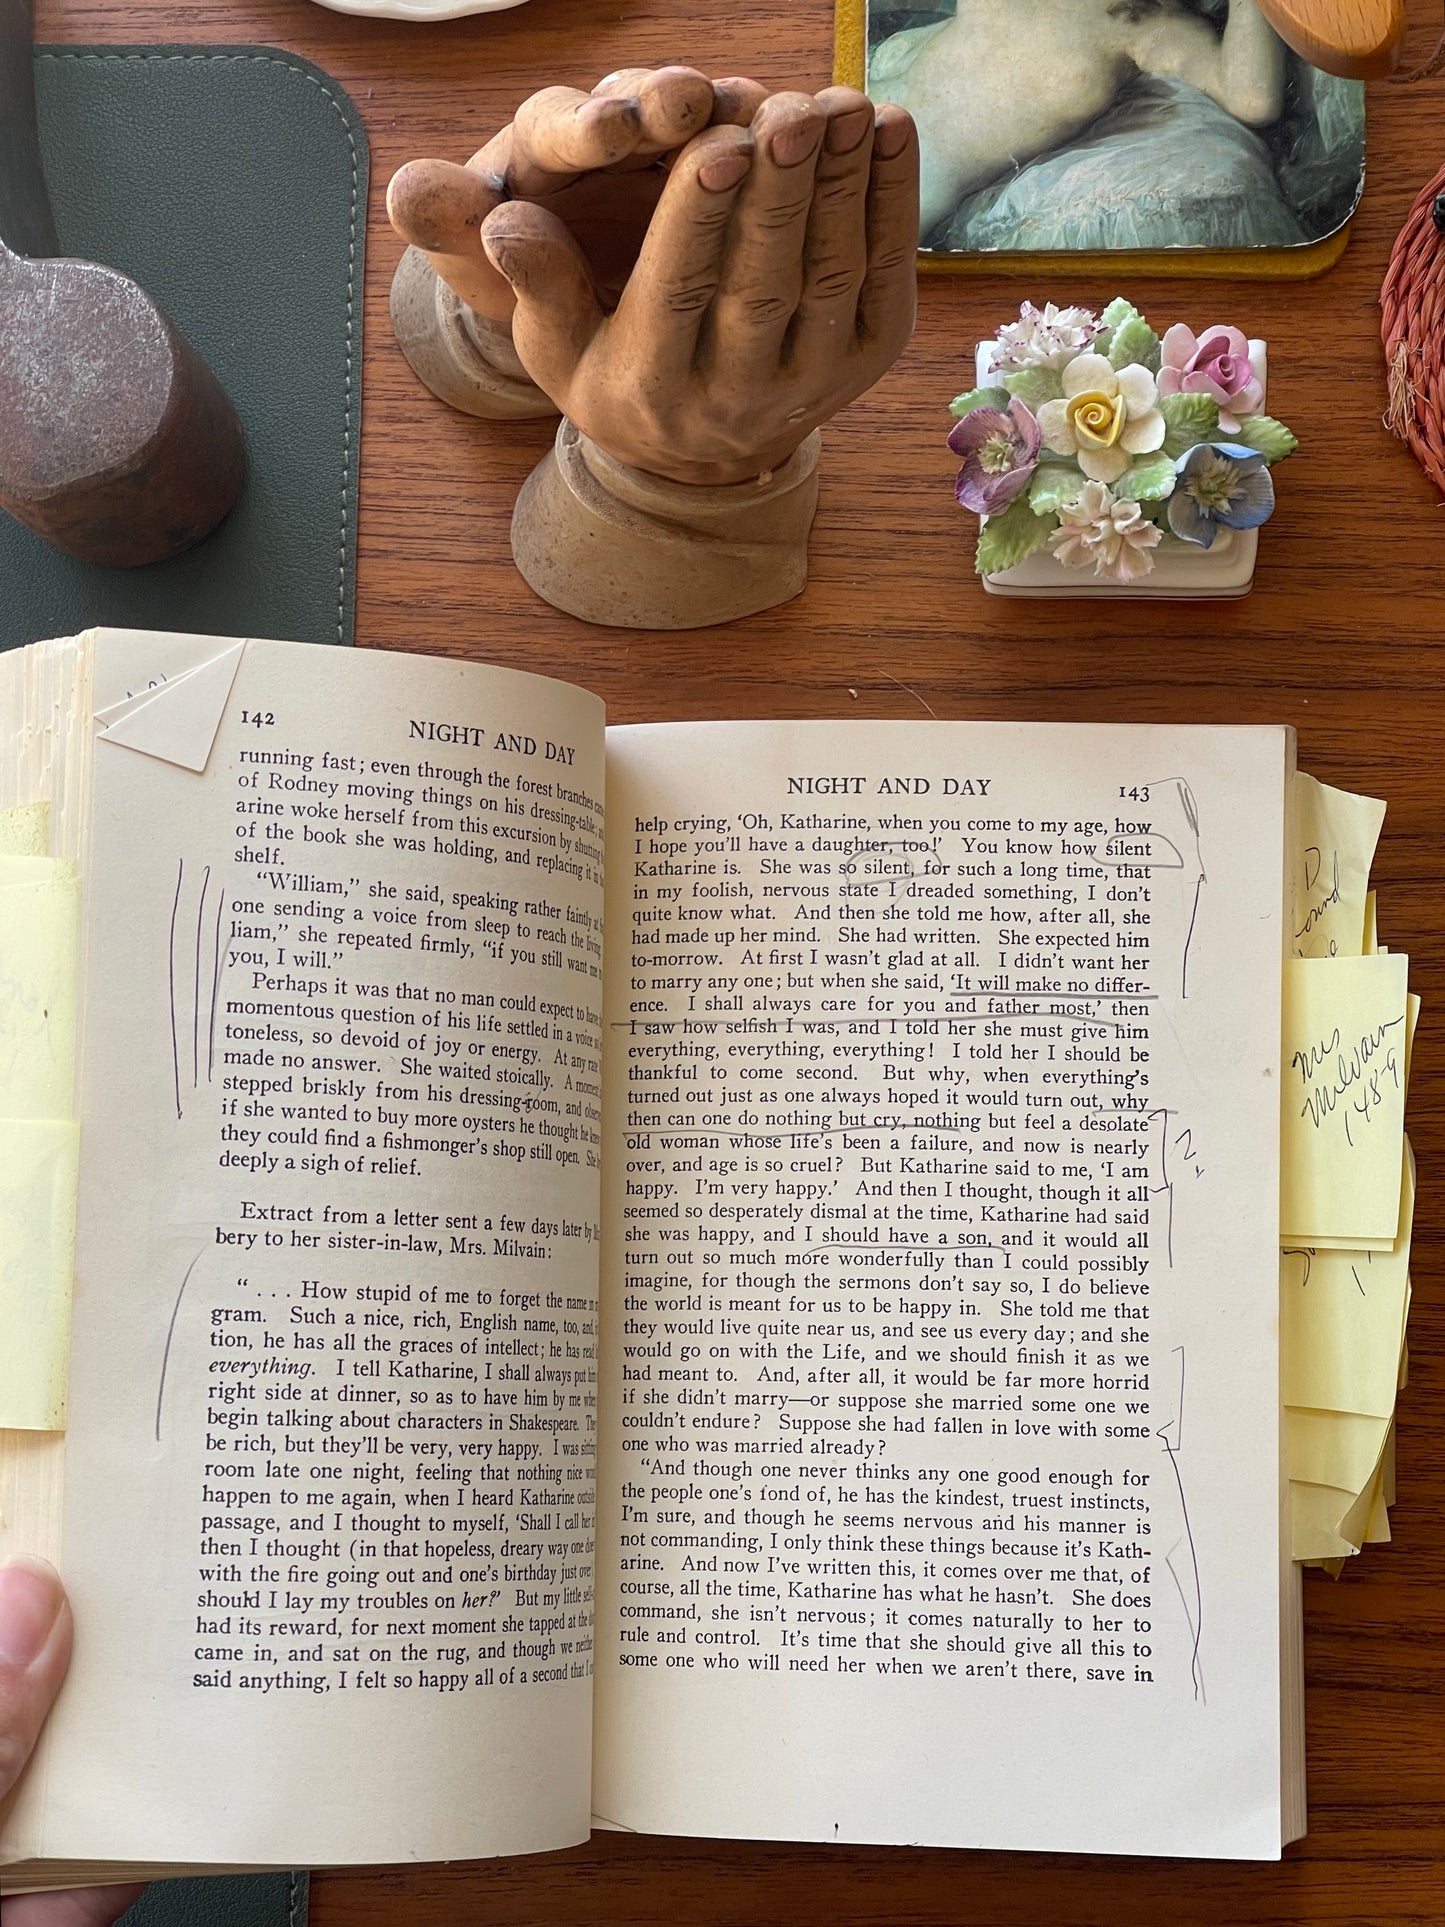 142
NIGHT AND DAY
running fast; even through the forest branches
of Rodney moving things on his dressing-table;
arine woke herself from this excursion by shutting
of the book she was holding, and replacing it in
shelf.
“William,” she said, speaking rather faintly at
one sending a voice from sleep to reach the living
liam,” she repeated firmly, “if you still want me
you, I will.”
Perhaps it was that no man could expect to have
momentous question of his life settled in a voice
toneless, so devoid of joy or energy. At any rate
made no answer. She waited stoically. A moment
stepped briskly from his dressing-room, and
if she wanted to buy more oysters he thought he
they could find a fishmonger's shop still open. She
deeply a sigh of relief.
Extract from a letter sent a few days later by
bery to her sister-in-law, Mrs. Milvain:
“ . . . How stupid of me to forget the name
gram. Such a nice, rich, English name, too, and,
tion, he has all the graces of intellect; he has read
everything. I tell Katharine, I shall always put
right side at dinner, so as to have him by me
begin talking about characters in Shakespeare.
be rich, but they'll be very, very happy. I was
room late one night, feeling that nothing nice
happen to me again, when I heard Katharine
passage, and I thought to myself, ‘Shall I call her
then I thought (in that hopeless, dreary way one
with the fire going out and one's birthday just over
should I lay my troubles on her?’ But my little
had its reward, for next moment she tapped at the
came in, and sat on the rug, and though we
said anything, I felt so happy all of a second that I
NIGHT AND DAY
143
help crying, ‘Oh, Katharine, when you come to my age, how
I hope you'll have a daughter, too!’ You know how silent
Katharine is. She was so silent, for such a long time, that
in my foolish, nervous state I dreaded something, I don't
quite know what. And then she told me how, after all, she
had made up her mind. She had written. She expected him
to-morrow. At first I wasn't glad at all. I didn't want her
to marry any one; but when she said, ‘It will make no differ-
ence. I shall always care for you and father most,’ then
I saw how selfish I was, and I told her she must give him
everything, everything, everything! I told her I should be
thankful to come second. But why, when everything's
turned out just as one always hoped it would turn out, why
then can one do nothing but cry, nothing but feel a desolate
old woman whose life's been a failure, and now is nearly
over, and age is so cruel? But Katharine said to me, ‘I am
happy. I'm very happy.’ And then I thought, though it all
seemed so desperately dismal at the time, Katharine had said
she was happy, and I should have a son, and it would all
turn out so much more wonderfully than I could possibly
imagine, for though the sermons don't say so, I do believe
the world is meant for us to be happy in. She told me that
they would live quite near us, and see us every day; and she
would go on with the Life, and we should finish it as we
had meant to. And, after all, it would be far more horrid
if she didn't marry—or suppose she married some one we
couldn't endure? Suppose she had fallen in love with some
one who was married already?
“And though one never thinks any one good enough for
the people one's fond of, he has the kindest, truest instincts,
I'm sure, and though he seems nervous and his manner is
not commanding, I only think these things because it's Kath-
arine. And now I've written this, it comes over me that, of
course, all the time, Katharine has what he hasn't. She does
command, she isn't nervous; it comes naturally to her to
rule and control. It's time that she should give all this to
some one who will need her when we aren't there, save in
?
Mrs
Milvain
148-9